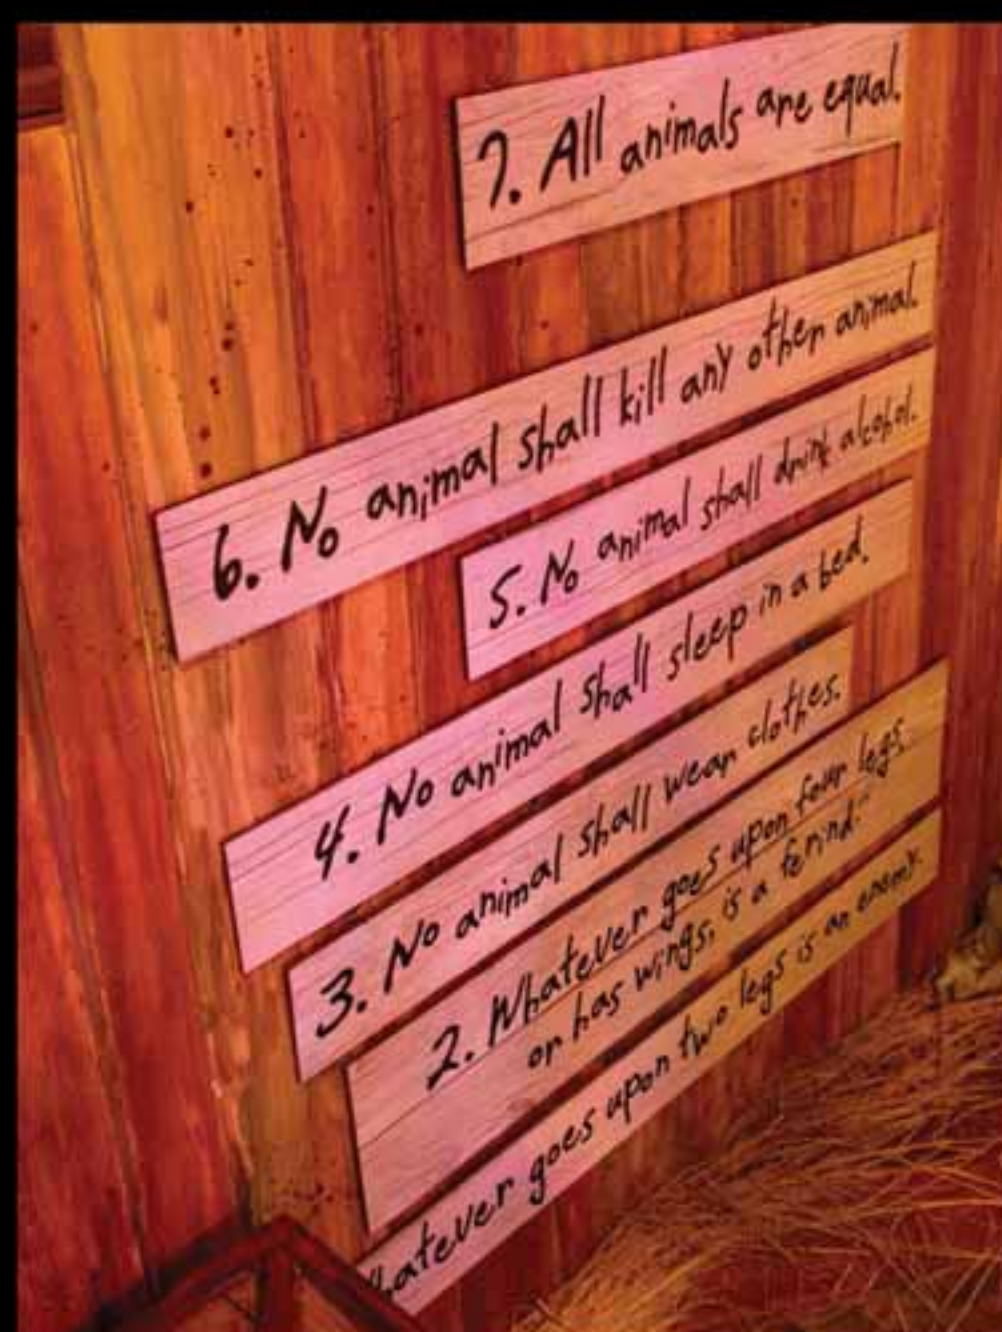 7. All animals are equal.
6. No animal shall kill any other animal.
5. No animal shall drink alcohol.
4. No animal shall sleep in a bed.
3. No animal shall wear clothes.
2. Whatever goes upon four legs
or has wings, is a ferind."
hatever goes upon two legs is an enemy.